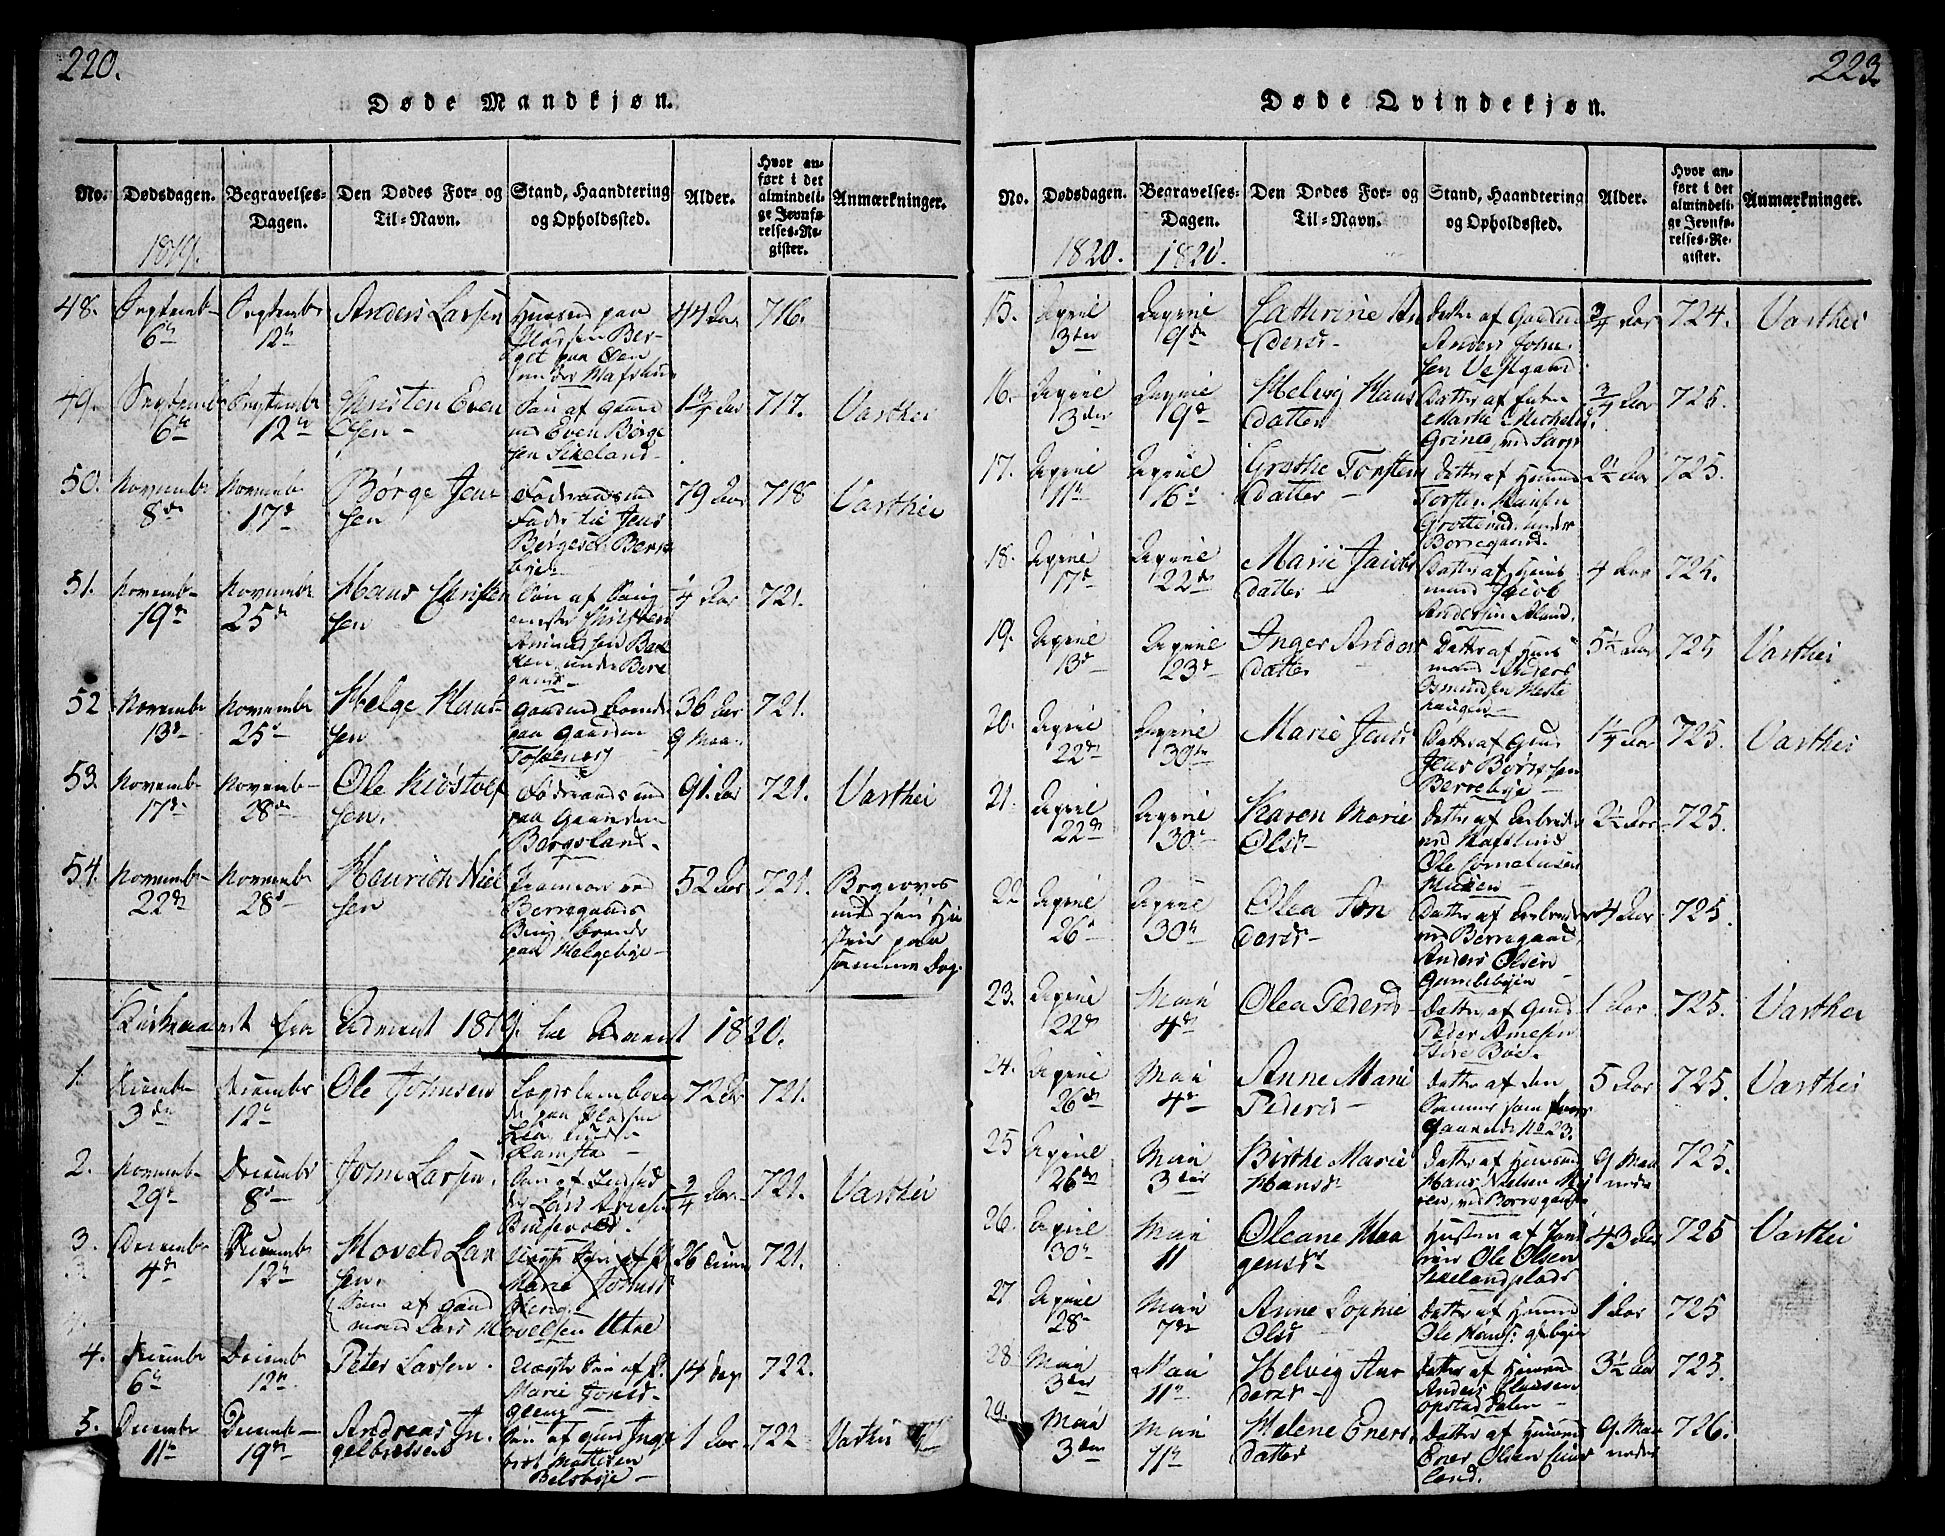 220.
Døde Mandkjøn.
No.
Dødsdagen.
1819.
Begravelses-
Dagen.
Den Dødes For- og
Til-Navn.
Stand, Haandtering
og Opholdssted.
Alder.
Hvor an-
ført i det
almindeli-
ge Jevnfø-
relses-Re-
gister.
Anmærkninger.
48.
Septemb-
6te
Septembr
12te
Anders Larsen
Huusmd paa
Pladsen Ber-
get paa Øen
under Hafslun
44 Aar
716.
49.
Septemb
6te
Septembr
12te
Christen Even
sen
Søn af Gaard
md Even Børge
sen Sikeland
1 3/4 Aar
717.
Varthei
50.
Novemb
8de
Novemb
17de
Børge Jen
sen
Fader til Jens
Børgesen
79 Aar
718
Varthei
51.
Novemb-
19de
Novemb
25de
Hans Christen
sen
Søn af
Christen
Amundsen Bak
ken under Bore
gaard
1/4 Aar
721.
52
Novemb
13de
Novemb
25de
Helge Hans
sen
paa Gaarden
Tosenes
36 Aar
9 Maa-
721.
53.
Novemb
17de
Novemb-
28de
Ole Kiøstolf
sen.
paa Gaarden
Bergsland.
91. Aar
721.
Varthei
54.
Novemb-
22de
Novemb
28de
Hans Niel
sen
Borregaards
Brug boende
paa Helgebye-
52 Aar
721.
Begraves
med sin
paa
samme Dag.
Kirkeaaret fra Advent 1819. til Advent 1820.
1.
Decemb
3die
Decembr
12te
Ole Johnsen
Logerende boen
de paa Pladsen
Lia under
Ramstad
72 Aar
721.
2.
Novemb-
29de
Decembr
8de
John Larsen.
2/4 Aar
721.
Varthei
3.
Decembr
4de
Decemb
12te
Hoveld Lar
sen.
Søn af Gaard
mand Lars Hovelsen Utne
Uægte Søn af P.
Marie Johns
26
721.
4.
Decembr
6te
Decemb
12te
Peter Larsen.
Uægte Søn af P.
Marie Johns-
Gleng
14 Dage
722.
5.
Decemb
11te
Decemb-
19de
Andreas In
gelbretsen
Søn af Gmd Inge
bret Mattesen
Belsbye-
1 Aar-
722
Varthei
223
Døde Qvindekjøn.
No.
Dødsdagen.
1820.
Begravelses-
Dagen.
1820.
Den Dødes For- og
Til-Navn.
Stand, Haandtering
og Opholdssted.
Alder.
Hvor an-
ført i det
almindeli-
ge Jevnfø-
relses-Re-
gister.
Anmærkninger.
15.
April
3die
April
9de
Cathrine An
dersd-
Datter af Gaardmd
Anders John
sen Vestgaard
3/4 Aar
724.
Varthei
16.
April
3die
April
9de
Helvig Hans
datter
Datter af Enken
Marthe Michels
Grinie, ved Sarps
3/4 Aar
725.
17.
April
11te
April
16de
Grethe Torstens
datter
Datter af Huusmd
Torsten Hansen
Grotterød under
Borregaard.
2 1/2 Aar
725.
18.
April
17de
April
22de
Marie Jacobs
datter
Datter af Huus
mand Jacob
Andersen
4 Aar
725.
19.
April
13de
April
23de
Inger Anders
datter
Datter af Huus
mand Anders
Osmundsen Heste
haugen
5 1/2 Aar
725
Varthei
20.
April
22de
April
30te
Marie Jensd
Datter af Gmd
Jens Børgesen
Berrebye
1 1/4 Aar
725.
Varthei
21.
April
22de
April
30te
Karen Marie
Olsd-
Datter af Arbeider
ved Hafslund
Ole Cornelusen
2 1/2 Aar
725.
22
April
26de
April
30te
Olea An
dersd-
Datter af Arbeider
ved Borregaard
Anders Olsen
Gamlebyen
4 Aar
725.
23.
April
22de
Mai
4de
Olea Pedersd-
Datter af Gmd
Peder Arnesen
Store Bøe.
1 Aar
725.
Varthei
24.
April
26de
Mai
4de
Anne Marie
Pedersd-
Datter af den
Samme som foran
No 23.
5 Aar
725.
Varthei
25
April
26de
Mai
3die
Birthe Marie
Hansd-
Datter af Huusmd
Hans Nielsen
ved Borregaard
9 Maa
neder
725.
26.
April
30te
Mai
11
Oleane Maa
gensd-
Hustru af
Ole Olsen
Sikelandplads
43 Aar
725
Varthei
27
April
28-
Mai
7de
Anne Sophie
Olsd
Datter af Huusmd
Ole Hans:
1 Aar
725
28
Mai
3die
Mai
11te
Helvig An
dersd-
Datter af Huusmd
Anders Clausen
Opstaddalen-
3 1/2 Aar
725.
29.
Mai
3die
Mai
11te
Helene Eners
datter
Datter af Huusmd
Ener Olsen
land.
9. Maa
neder
726.